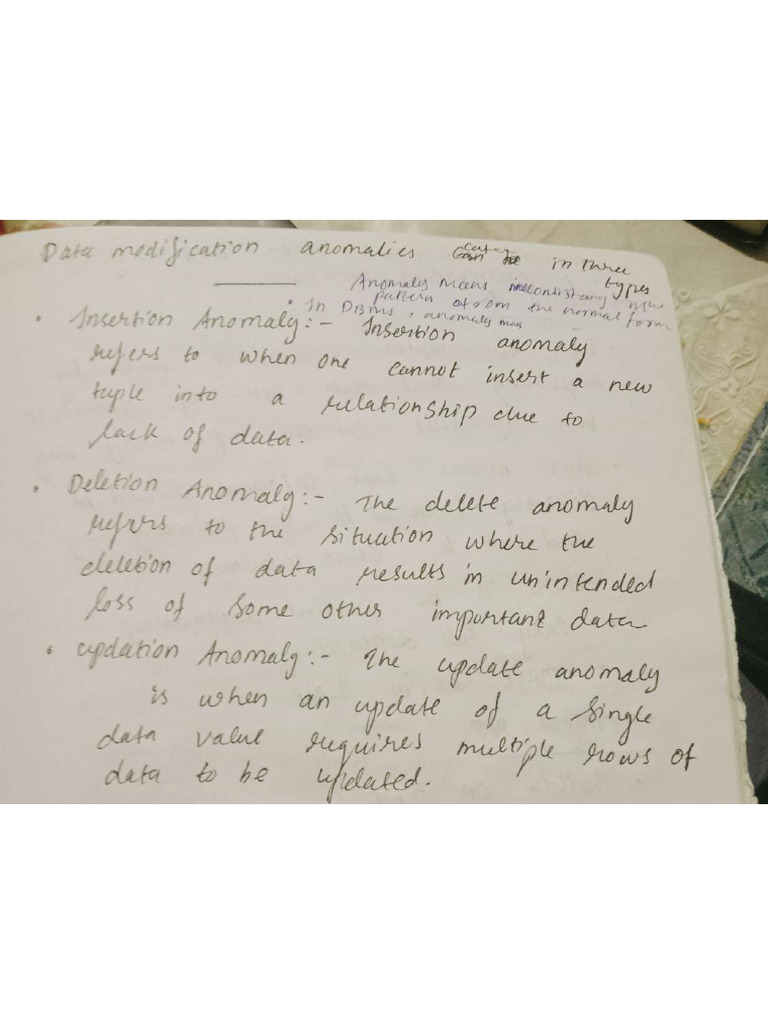 Data modification anomalies in three
types
Anomaly means in the
pattern from the normal form
In DBMS, anomaly
• Insertion Anomaly:- Insertion anomaly
refers to when one cannot insert a new
tuple into a relationship due to
lack of data.
• Deletion Anomaly:- The delete anomaly
refers to the situation where the
deletion of data results in unintended
loss of some other important data
• Updation Anomaly:- The update anomaly
is when an update of a single
data value requires multiple rows of
data to be updated.